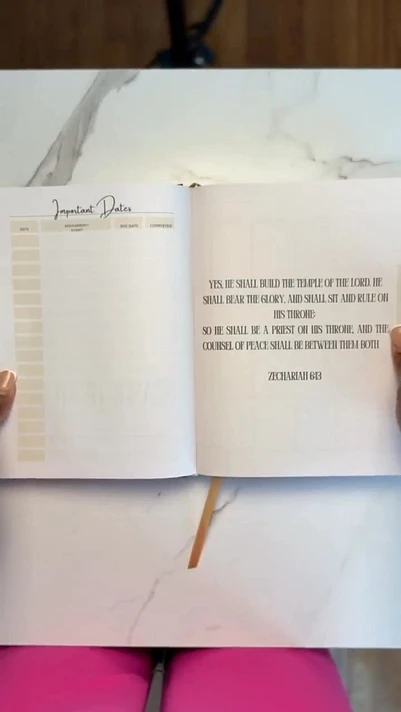 Important Dates
DATE
ASSIGNMENT/
EVENT
DUE DATE
COMPLETED
YES, HE SHALL BUILD THE TEMPLE OF THE LORD. HE
SHALL BEAR THE GLORY, AND SHALL SIT AND RULE ON
HIS THRONE;
SO HE SHALL BE A PRIEST ON HIS THRONE, AND THE
COUNSEL OF PEACE SHALL BE BETWEEN THEM BOTH
ZECHARIAH 6:13